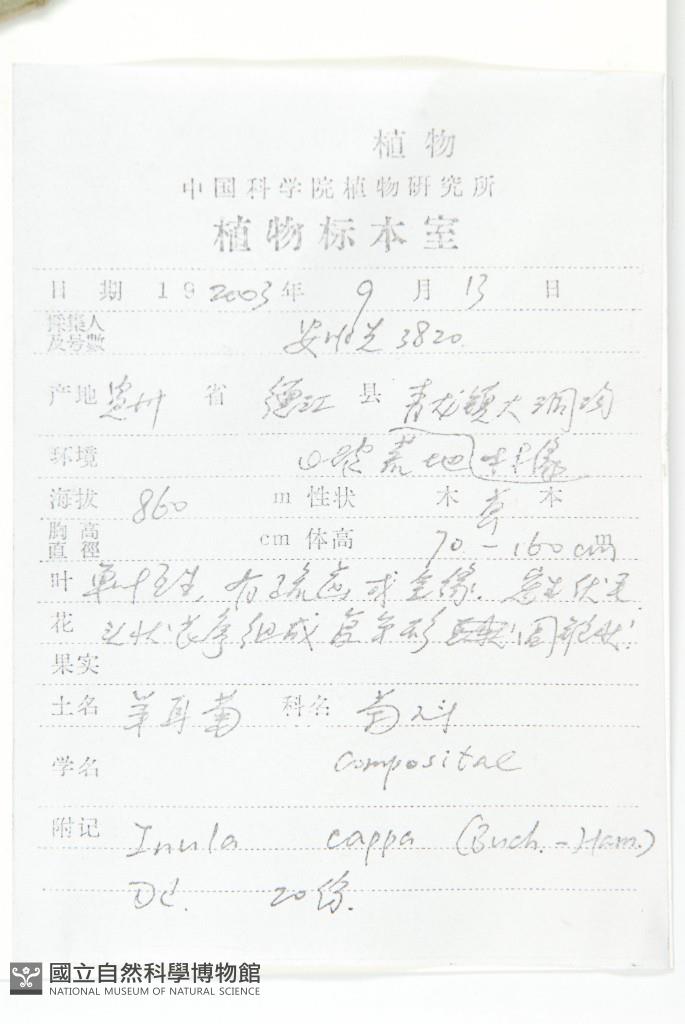 植物
中国科学院植物研究所
植物标本室
日期 19 2003年 9月 13日
採集人
及号數 安明先 3820
产地 贵州 省 德江 县 青龙镇大洞沟
环境 山坡荒地 林缘
海拔 860 m 性状 木 草 本
胸高
直徑 cm 体高 70-160cm
叶 单叶互生, 有疏齿或全缘. 密生伏毛
花 头状花序组成 圆锥状.
果实
土名 羊耳菊 科名 菊科
学名 Compositae
附记 Inula cappa (Buch.-Ham.)
DC. 20份.
國立自然科學博物館
NATIONAL MUSEUM OF NATURAL SCIENCE